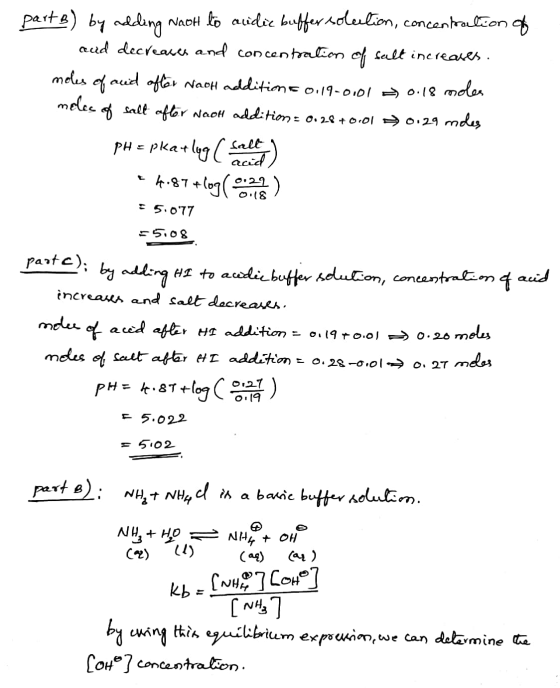 part B) by adding NaOH to acidic buffer solution, concentration of
acid decreases and concentration of salt increases.
moles of acid after NaOH addition = 0.19-0.01 ⇒ 0.18 moles
moles of salt after NaOH addition = 0.28 + 0.01 ⇒ 0.29 moles
pH = pka + log (salt/acid)
= 4.87 + log (0.29/0.18)
= 5.077
= 5.08
part C): by adding HI to acidic buffer solution, concentration of acid
increases and salt decreases.
moles of acid after HI addition = 0.19 + 0.01 ⇒ 0.20 moles
moles of salt after HI addition = 0.28 - 0.01 ⇒ 0.27 moles
pH = 4.87 + log (0.27/0.19)
= 5.022
= 5.02
part B): NH3 + NH4Cl is a basic buffer solution.
NH3 + H2O ⇌ NH4⊕ + OH⊖
(aq) (l) (aq) (aq)
kb = [NH4⊕][OH⊖]/[NH3]
by using this equilibrium expression, we can determine the
[OH⊖] concentration.